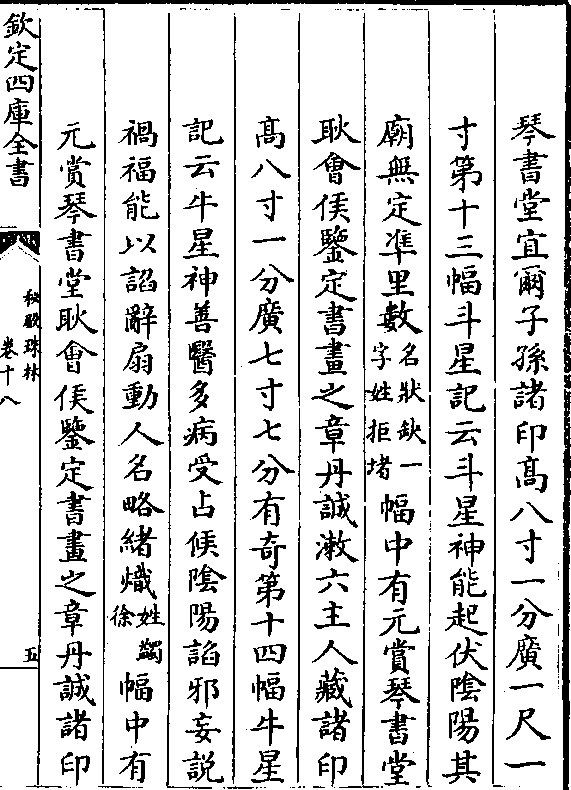 琴書堂宜爾子孫諸印髙八寸一分廣一尺一
寸第十三幅斗星記云斗星神能起伏隂陽其
廟無定凖里數名狀缺一字姓拒堵幅中有元賞琴書堂
耿㑹侯鑒定書畫之章丹誠潄六主人藏諸印
髙八寸一分廣七寸七分有奇第十四幅牛星
記云牛星神善醫多病受占候隂陽謟邪妄説
禍福能以謟辭扇動人名略緒熾姓蠲徐幅中有
元賞琴書堂耿㑹侯鑒定書畫之章丹誠諸印
欽定四庫全書
秘殿珠林
卷十八
五